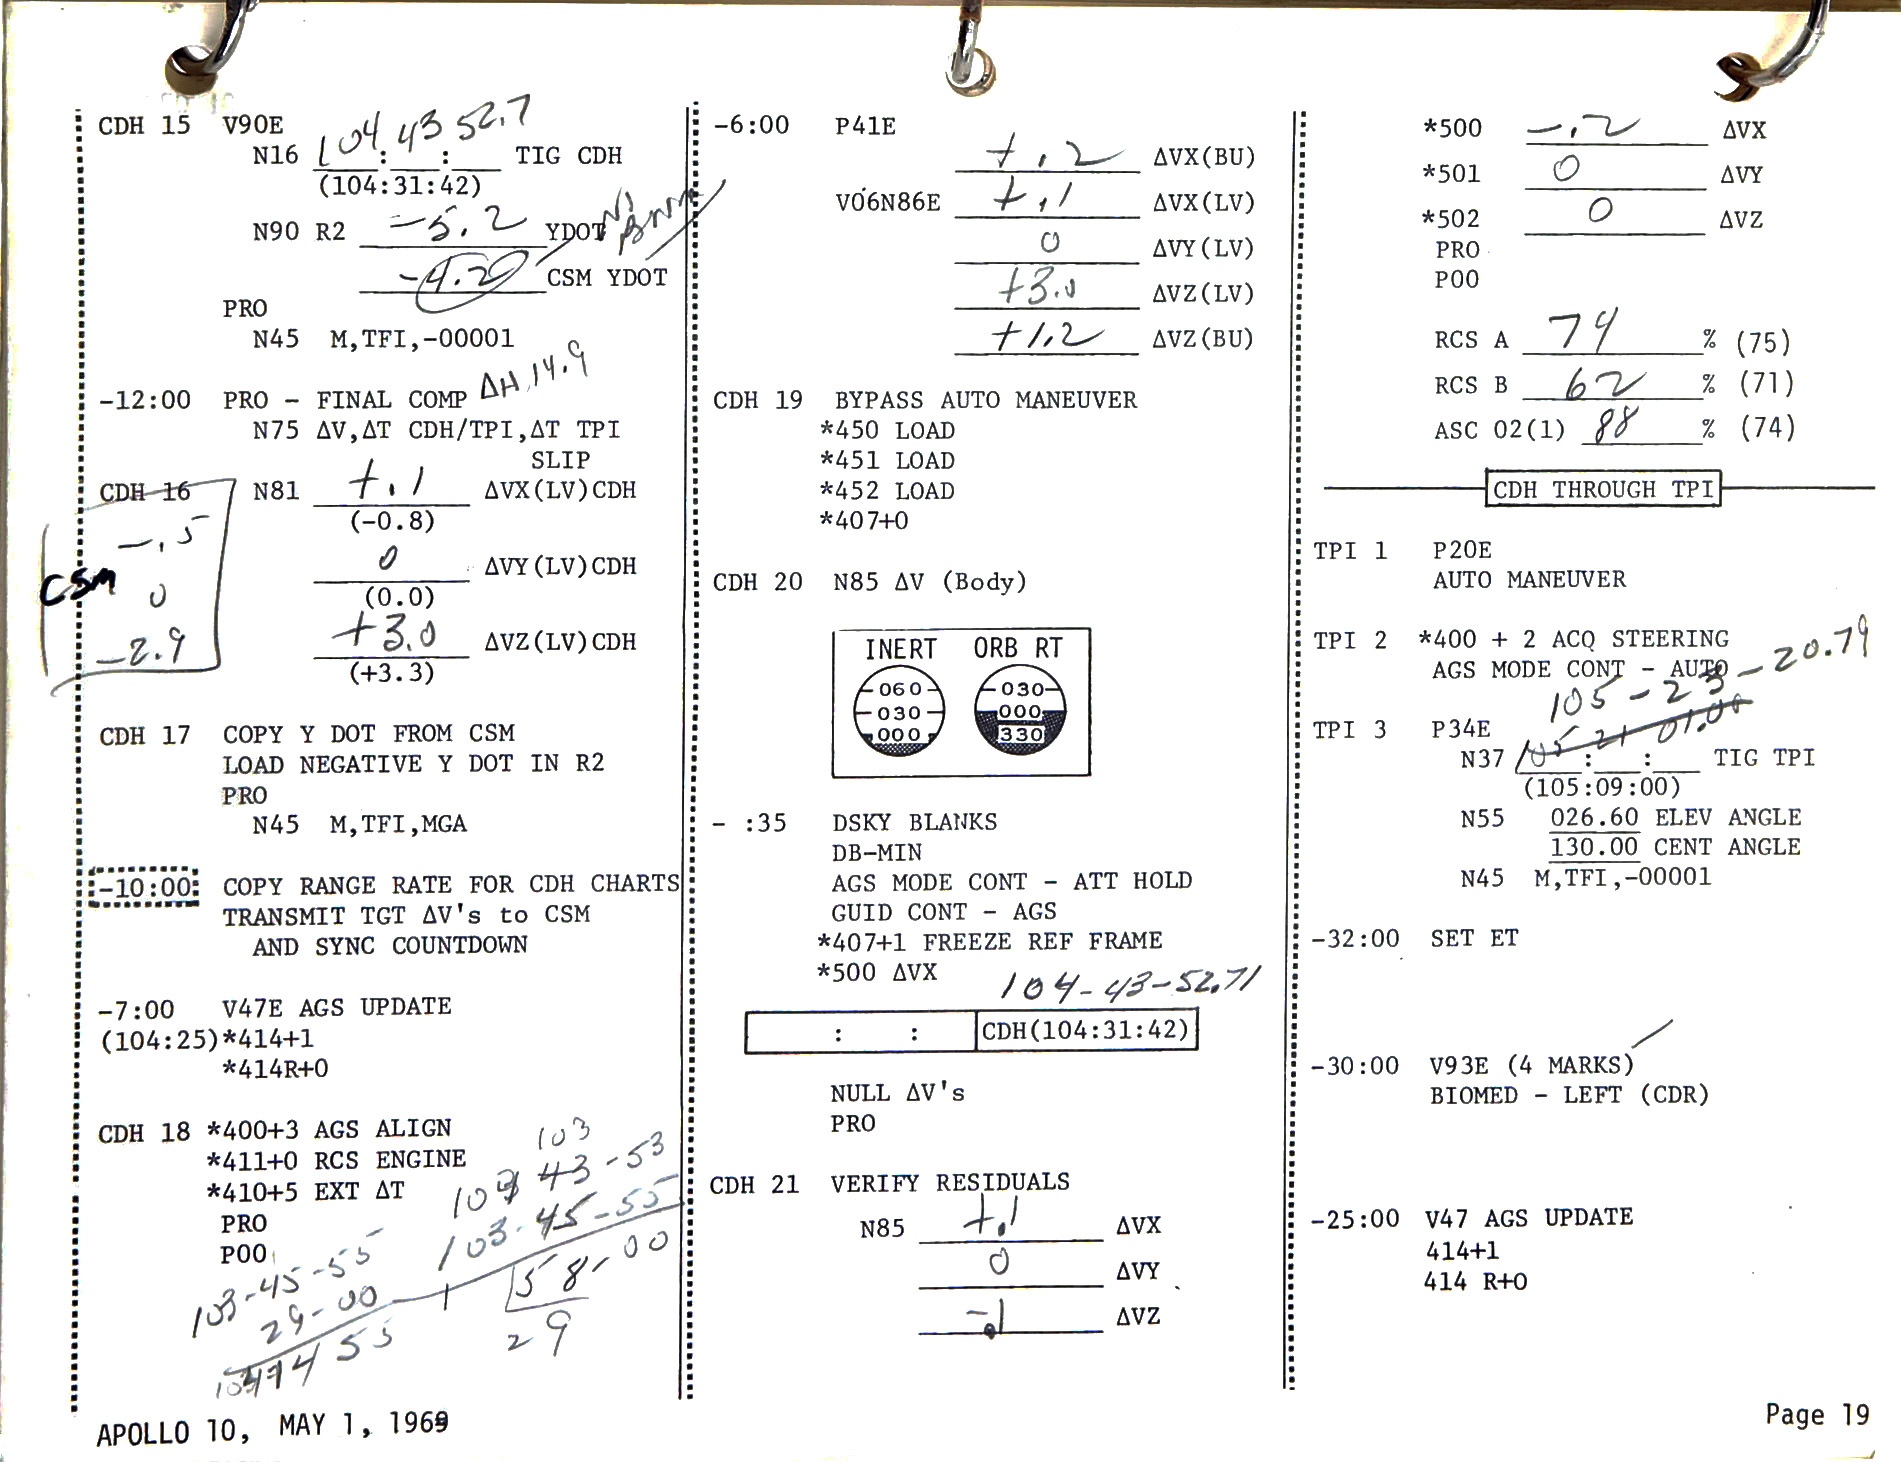 CDH 15 V90E
N16 104:43:52.7 TIG CDH
(104:31:42)
N90 R2 -5.2 YDOT
-4.2 CSM YDOT
PRO
N45 M,TFI,-00001
ΔH 14.9
-12:00 PRO - FINAL COMP
N75 ΔV,ΔT CDH/TPI,ΔT TPI
SLIP
CDH 16 N81 +.1 ΔVX(LV)CDH
(-0.8)
0 ΔVY(LV)CDH
(0.0)
+3.0 ΔVZ(LV)CDH
(+3.3)
-.5
CSM 0
-2.9
CDH 17 COPY Y DOT FROM CSM
LOAD NEGATIVE Y DOT IN R2
PRO
N45 M,TFI,MGA
-10:00 COPY RANGE RATE FOR CDH CHARTS
TRANSMIT TGT ΔV's to CSM
AND SYNC COUNTDOWN
-7:00 V47E AGS UPDATE
(104:25)*414+1
*414R+0
CDH 18 *400+3 AGS ALIGN
*411+0 RCS ENGINE
*410+5 EXT ΔT
PRO
P00
103
43-53
103-45-55
58-00
29
103-45-55
29-00
14 55
-6:00 P41E
+.2 ΔVX(BU)
V06N86E +.1 ΔVX(LV)
0 ΔVY(LV)
+3.0 ΔVZ(LV)
+1.2 ΔVZ(BU)
CDH 19 BYPASS AUTO MANEUVER
*450 LOAD
*451 LOAD
*452 LOAD
*407+0
CDH 20 N85 ΔV (Body)
INERT ORB RT
060 030
030 000
000 330
- :35 DSKY BLANKS
DB-MIN
AGS MODE CONT - ATT HOLD
GUID CONT - AGS
*407+1 FREEZE REF FRAME
*500 ΔVX
104-43-52.71
: : CDH(104:31:42)
NULL ΔV's
PRO
CDH 21 VERIFY RESIDUALS
N85 +.1 ΔVX
0 ΔVY
-.1 ΔVZ
*500 -.2 ΔVX
*501 0 ΔVY
*502 0 ΔVZ
PRO
P00
RCS A 74 % (75)
RCS B 62 % (71)
ASC 02(1) 88 % (74)
CDH THROUGH TPI
TPI 1 P20E
AUTO MANEUVER
TPI 2 *400 + 2 ACQ STEERING
AGS MODE CONT - AUTO
105-23-20.79
TPI 3 P34E
N37 105:21:01.00 TIG TPI
(105:09:00)
N55 026.60 ELEV ANGLE
130.00 CENT ANGLE
N45 M,TFI,-00001
-32:00 SET ET
-30:00 V93E (4 MARKS)
BIOMED - LEFT (CDR)
-25:00 V47 AGS UPDATE
414+1
414 R+0
APOLLO 10, MAY 1, 1969
Page 19